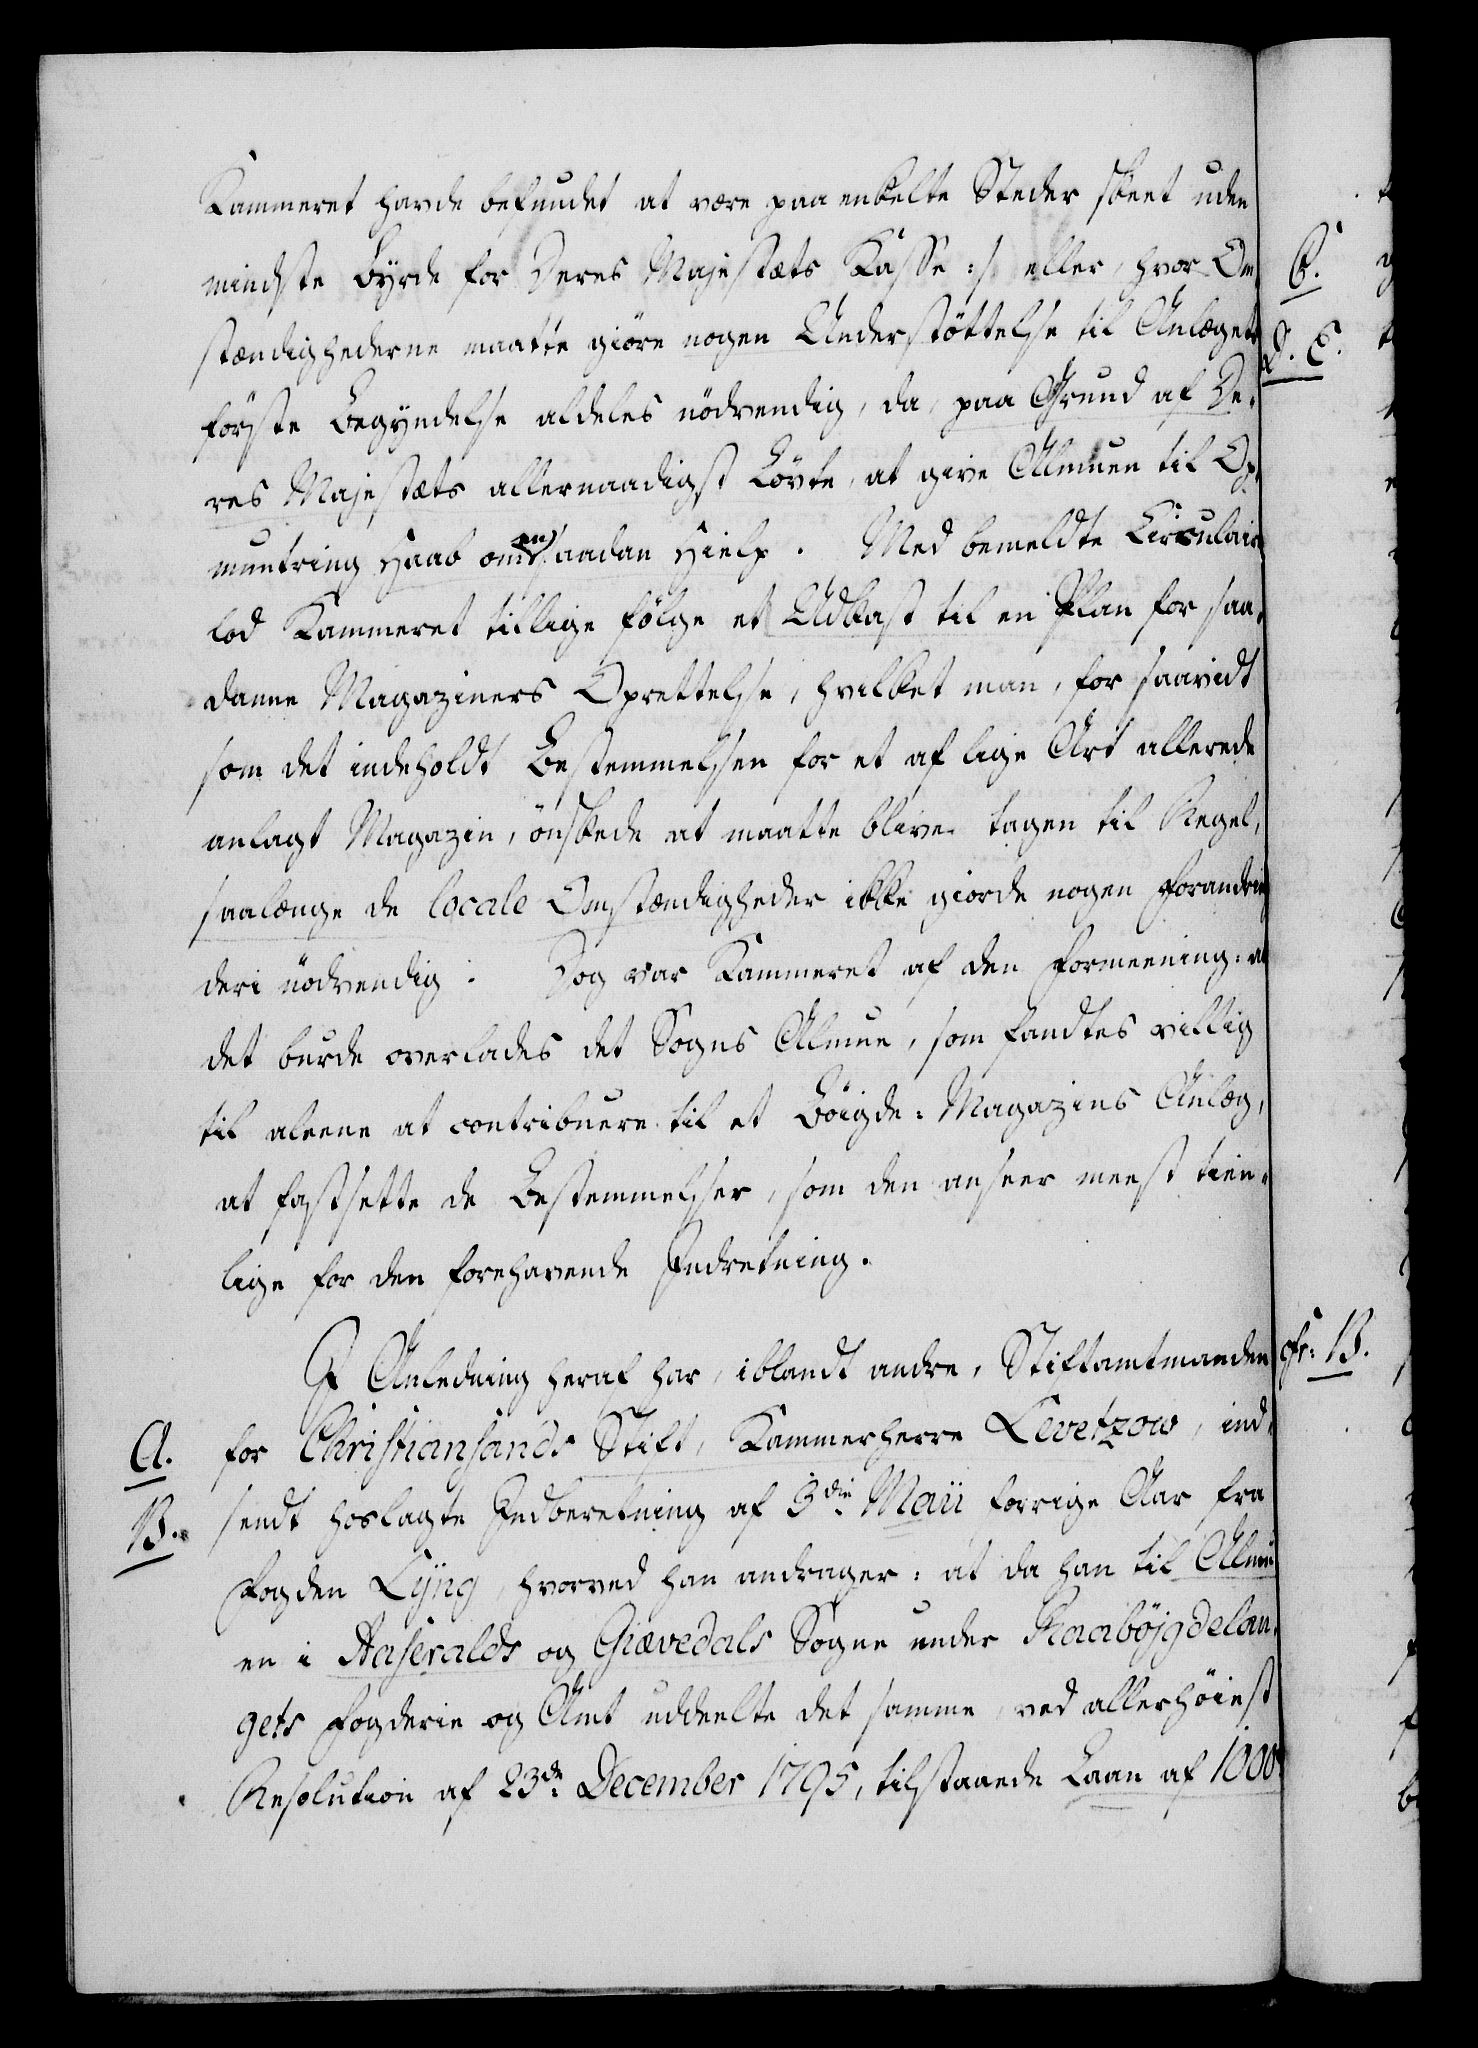 Kammeret havde befundet at være paa enkelte Steder skeet uden
mindste Byrde for Deres Majestæts Kasse :/ eller, hvor Om-
stændighederne maatte giöre nogen Understöttelse til Anlægets
förste Begyndelse aldeles nödvendig, da, paa Grund af De-
res Majestæts allernaadigst Lövte, at give Almuen til Op-
muntring Haab om en saadan Hielp. Med bemeldte Circulair
lod Kammeret tillige fölge et Udkast til en Plan for saa-
danne Magaziners Oprettelse, hvilket man, for saavidt
som det indeholdt Bestemmelsen for et af lige Art allerede
anlagt Magazin, önskede at maatte blive tagen til Regel,
saalænge de locale Omstændigheder ikke giorde nogen Forandring
deri nödvendig. Dog var Kammeret af den Formeening: at
det burde overlades det Sogns Almue, som fandtes villig
til aleene at contribuere til et Böigde-Magazins Anlæg,
at fastsette de Bestemmelser, som den anseer meest tien-
lige for den forehavende Indretning.
I Anledning heraf har, iblandt andre, Stiftamtmanden
A. for Christiansands Stift, Kammerherre Levetzow, ind-
B. sendt hoslagte Indberetning af 3die Maii forrige Aar fra
Fogden Lÿng, hvorved han andrager: at da han til Almu-
en i Aaseralds og Giævedals Sogne under Raaböjgdelau-
gets Fogderie og Amt uddeelte det samme, ved allerhöiest
Resolution af 23de December 1795, tilstaaede Laan af 1000
C.
D. E.
cfr: B.